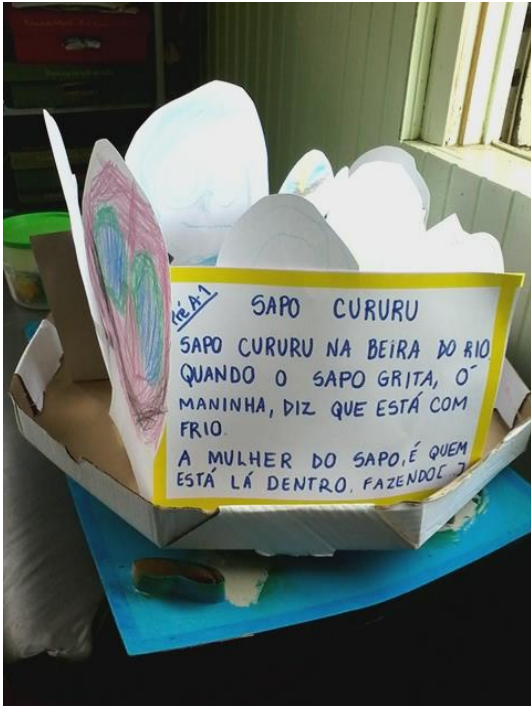 Pré A-1
SAPO CURURU
SAPO CURURU NA BEIRA DO RIO
QUANDO O SAPO GRITA, Ó
MANINHA, DIZ QUE ESTÁ COM
FRIO.
A MULHER DO SAPO, É QUEM
ESTÁ LÁ DENTRO, FAZENDO[ ]